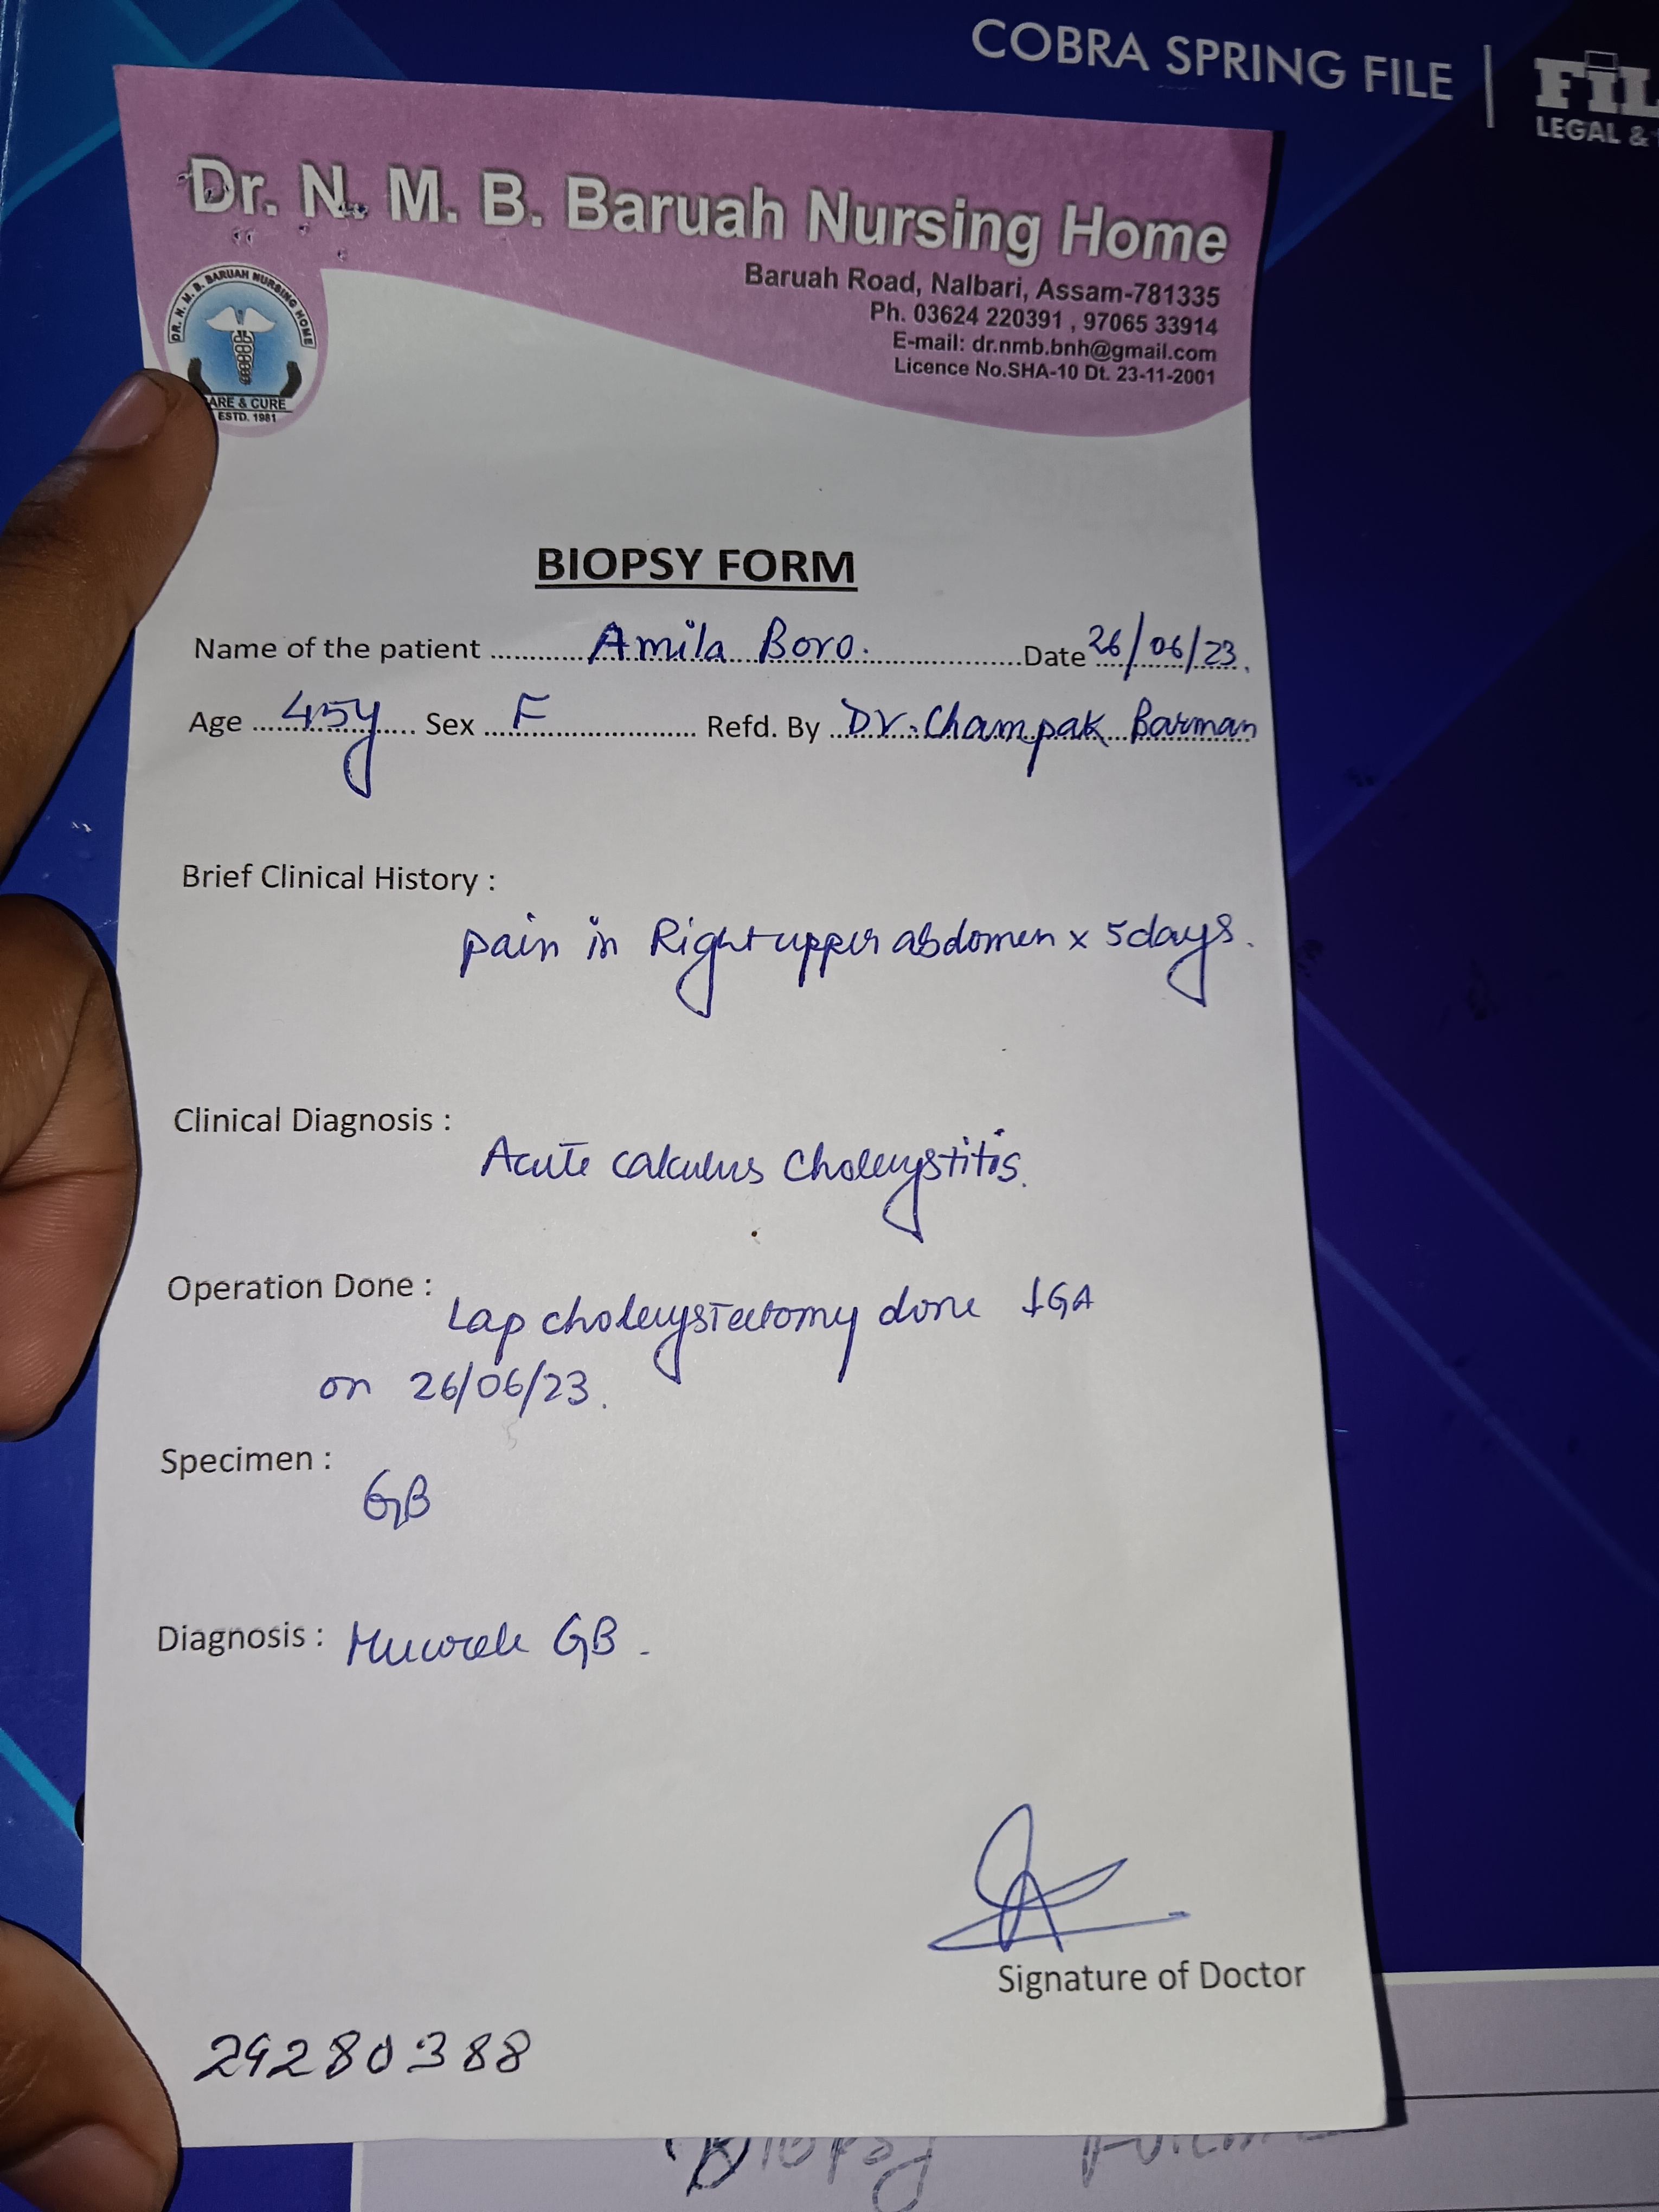 COBRA SPRING FILE
FiL
LEGAL &
Dr. N. M. B. Baruah Nursing Home
Baruah Road, Nalbari, Assam-781335
Ph. 03624 220391 , 97065 33914
E-mail: dr.nmb.bnh@gmail.com
Licence No.SHA-10 Dt. 23-11-2001
DR. N. M. B. BARUAH NURSING HOME
ARE & CURE
ESTD. 1981
BIOPSY FORM
Name of the patient Amila Boro. Date 26/06/23.
Age 45y Sex F Refd. By Dr. Champak Barman
Brief Clinical History :
pain in Right upper abdomen x 5days.
Clinical Diagnosis :
Acute calculus Cholecystitis.
Operation Done :
Lap cholecystectomy done GA
on 26/06/23.
Specimen :
GB
Diagnosis : GB.
Signature of Doctor
29280388
Biopsy